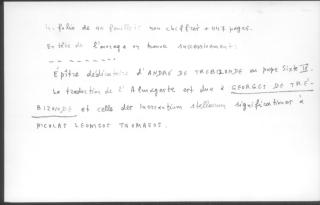 In-folio de un feuillet non chiffré + 447 pages.
En tête de l'ouvrage on trouve successivement:
- - - - - - - -
Épître dédicatoire d'ANDRÉ DE TREBIZONDE au pape Sixte IV.
La traduction de l'Almageste est due à GEORGES DE TRÉ-
BIZONDE et celle des inerrantium stellarum significationes à
NICOLAS LEONICUS THOMAEUS.